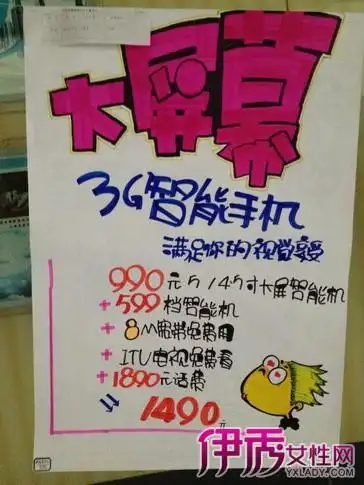 大屏幕
3G智能手机
满足你的视觉享受
990元5/4.5寸大屏智能机
+599档智能机
+8M宽带免费用
+ITV电视免费看
+1890元话费
1490元
伊秀女性网
YXLADY.COM